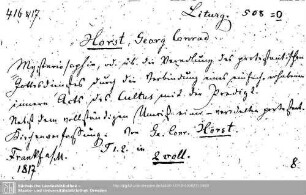 416 817.
Liturg. 508 = 0
Horst, Georg Conrad
Mysteriosophie, od. üb. die Veredlung des protestantischen
Gottesdienstes durch die Verbindung eines einfach erhabenen
innern Acts des Cultus mit der Predigt.
Nebst dem vollständigen Umriß einer veredelten protest.
Kirchenverfassung. von Ge. Conr. Horst.
Th 1. 2. in
Frankf. a/M. 2 voll.
1817. 8.